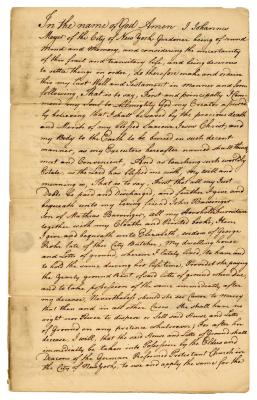 In the name of God Amen I Johannes
Meyer of the City of New York Gardener being of sound
Mind and Memory, and considering the uncertainty
of this frail and transitory life, and being desirous
to settle things in order, do therefore make and ordain
this my last Will and Testament in manner and form
following, That is to say, First and principally, I Com=
mend my Soul to Almighty God my Creator, assured=
ly believing that I shall be saved by the precious death
and Merits of my blessed Saviour Jesus Christ, and
my Body to the Earth to be buried in such decent
manner, as my Executors hereafter named shall think
meet and Convenient. And as touching such worldly
Estate, as the Lord has blessed me with, My will and
meaning is, That is to say, First that all my Just
Debts be paid and discharged, and further I give and
bequeath unto my loving friend John Baninger
Son of Mathias Baninger, all my Household furniture
together with my Cloaths and printed books, Item
I give and bequeath unto Elizabeth, widow of George
Peshe late of this City Butcher, My dwelling house
and Lotts of ground, wherein I lately lived, To have and
to hold the same during his life time, Provided she pays
the Yearly ground Rent of said Lotts of ground when due,
and to take possession of the same immediately after
my decease; Nevertheless should she ever Come to Marry
that then and in such Case, She shall have no
right nor Power to dispose or Sell said House and Lotts
of Ground, on any pretence whatsoever; For after her
decease, I will, that the said House and Lotts of Ground shall
immediately be taken into Possession by the Elders and
Deacons of the German Reformed Protestant Church in
the City of New York, to use and apply the same for the